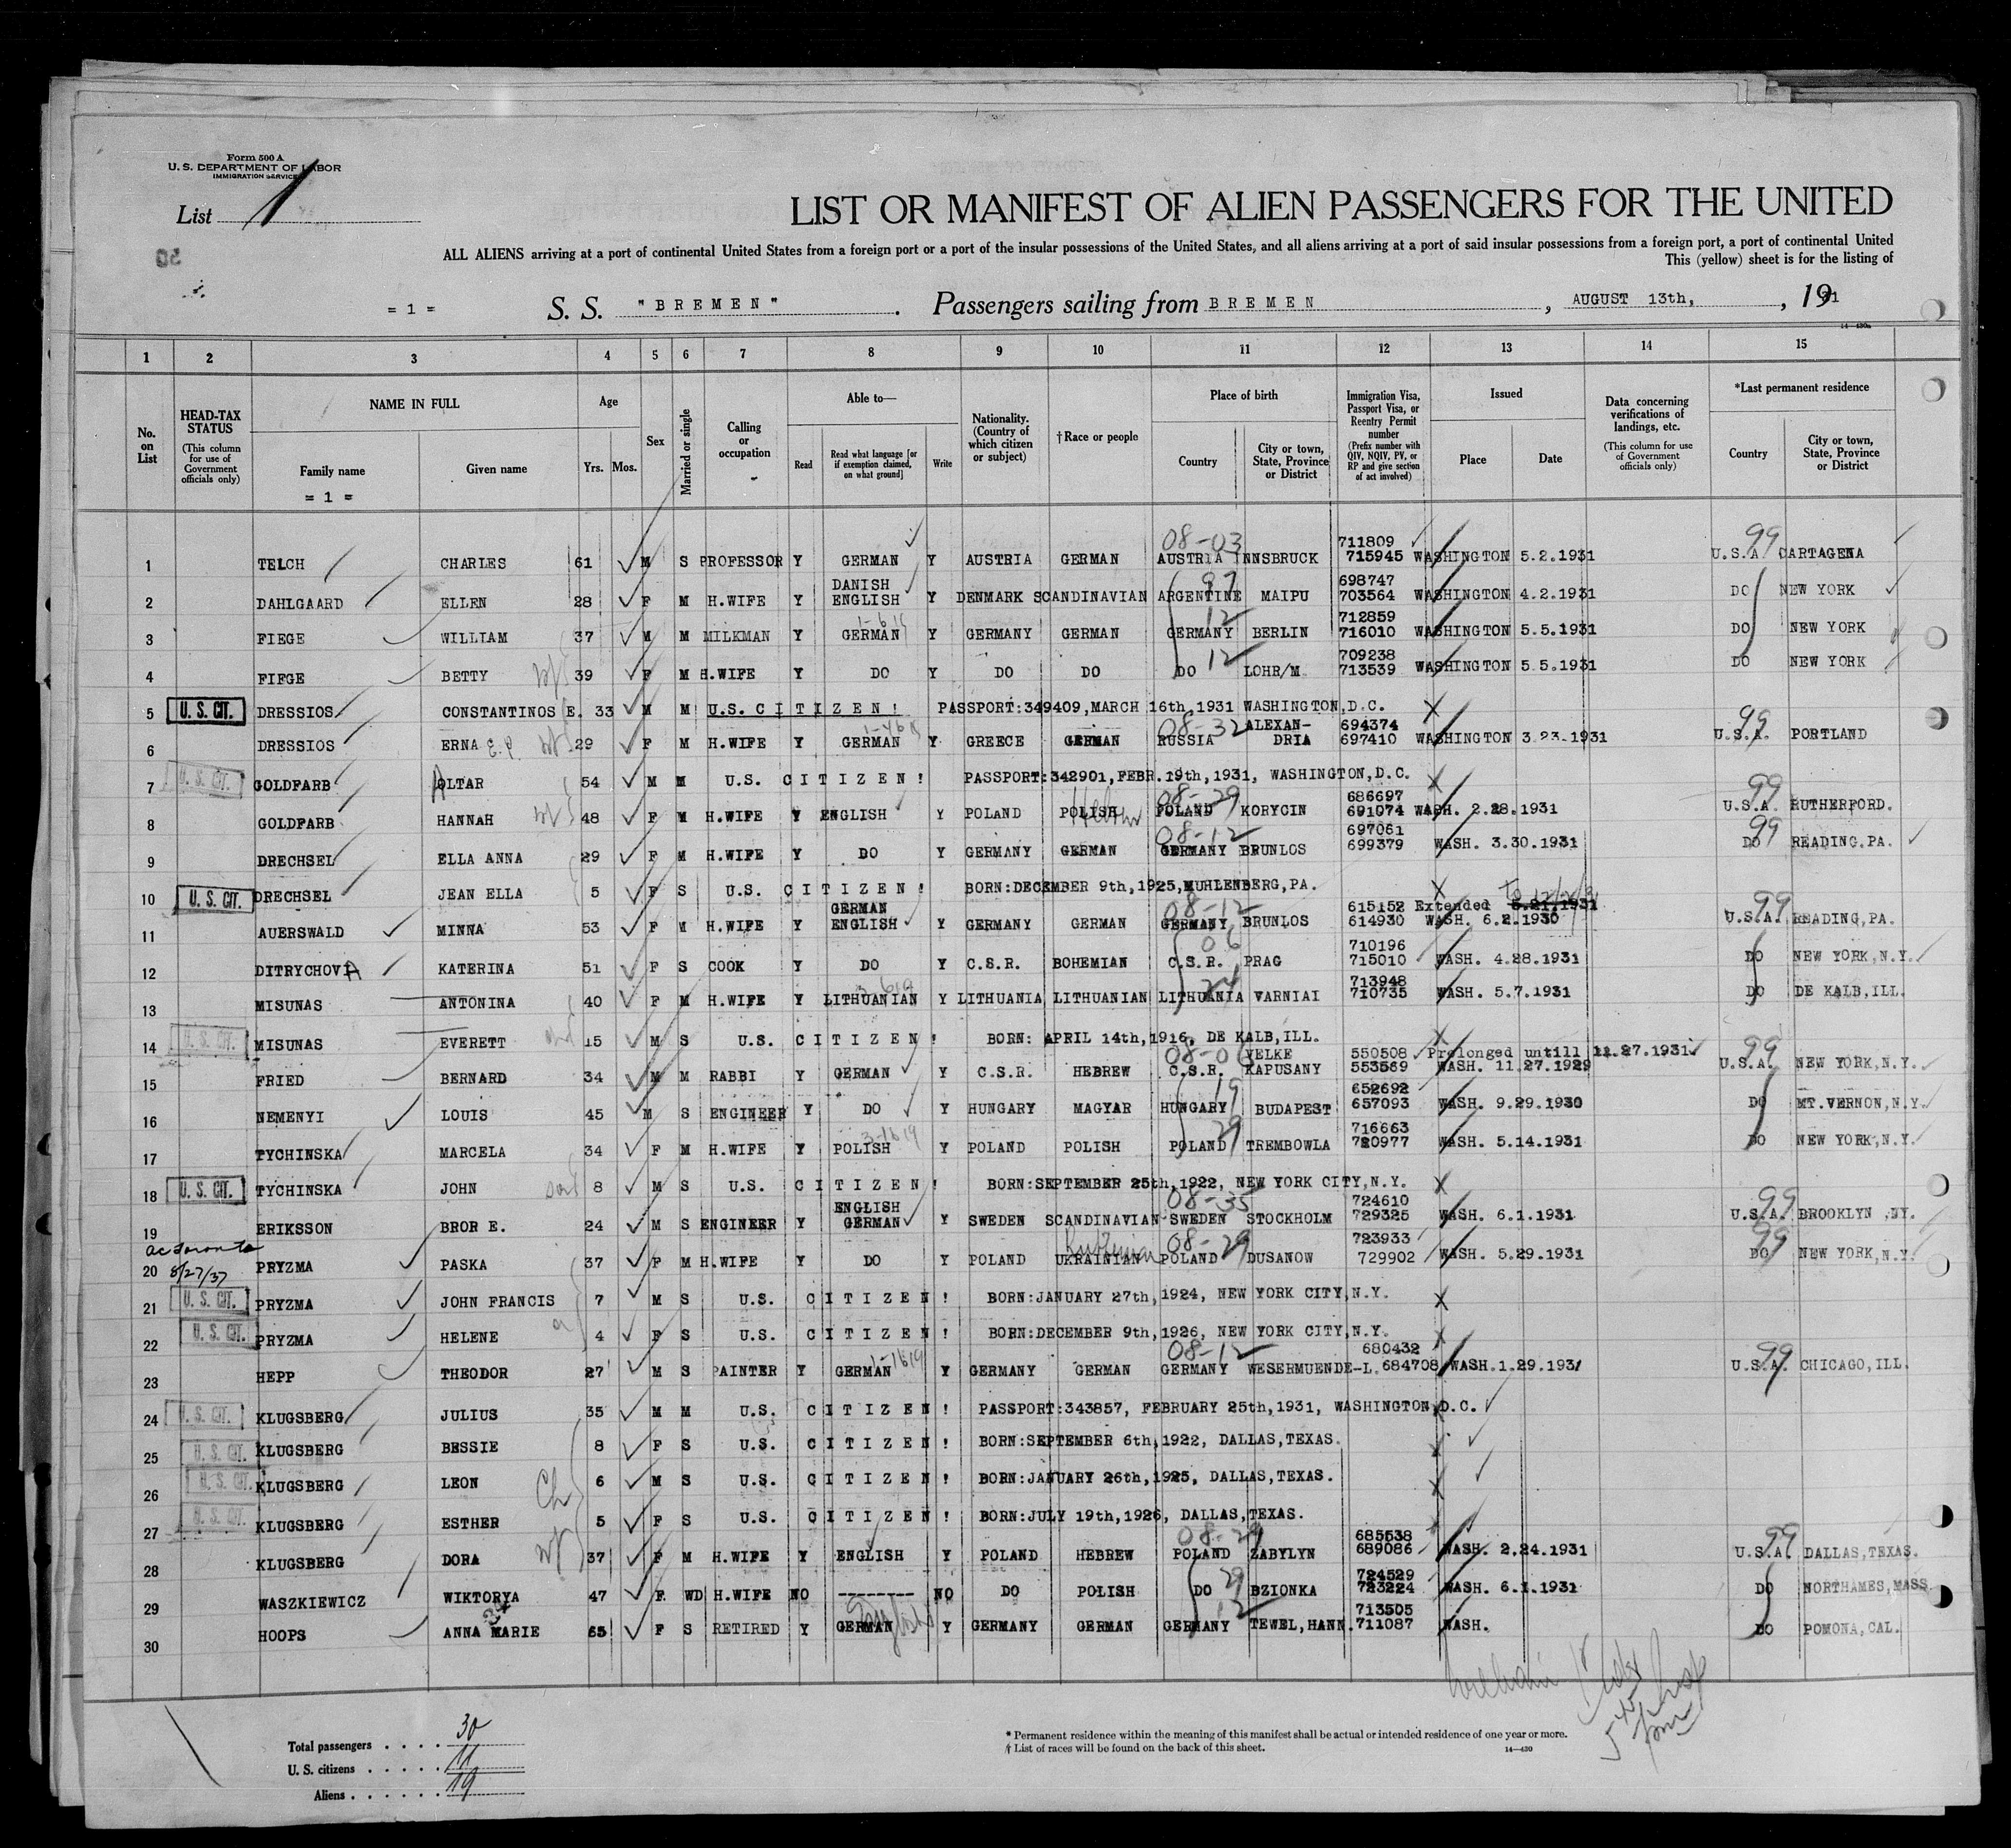 Form 500 A
U. S. DEPARTMENT OF LABOR
IMMIGRATION SERVICE
List 1
LIST OR MANIFEST OF ALIEN PASSENGERS FOR THE UNITED
ALL ALIENS arriving at a port of continental United States from a foreign port or a port of the insular possessions of the United States, and all aliens arriving at a port of said insular possessions from a foreign port, a port of continental United
This (yellow) sheet is for the listing of
= 1 = S. S. "BREMEN". Passengers sailing from BREMEN, AUGUST 13th, , 1931
14—430a
1 2 3 4 5 6 7 8 9 10 11 12 13 14 15
No. on List
HEAD-TAX STATUS (This column for use of Government officials only)
NAME IN FULL
Family name
= 1 =
Given name
Age
Yrs. Mos.
Sex
Married or single
Calling or occupation
Able to—
Read
Read what language [or if exemption claimed, on what ground]
Write
Nationality. (Country of which citizen or subject)
†Race or people
Place of birth
Country
City or town, State, Province or District
Immigration Visa, Passport Visa, or Reentry Permit number (Prefix number with QIV, NQIV, PV, or RP and give section of act involved)
Issued
Place
Date
Data concerning verifications of landings, etc. (This column for use of Government officials only)
*Last permanent residence
Country
City or town, State, Province or District
08-03 711809 99
1 TELCH CHARLES 61 M S PROFESSOR Y GERMAN Y AUSTRIA GERMAN AUSTRIA INNSBRUCK 715945 WASHINGTON 5.2.1931 U.S.A. CARTAGENA
DANISH 97 698747
2 DAHLGAARD ELLEN 28 F M H.WIFE Y ENGLISH Y DENMARK SCANDINAVIAN ARGENTINE MAIPU 703564 WASHINGTON 4.2.1931 DO NEW YORK
12 712859
3 FIEGE WILLIAM 37 M M MILKMAN Y GERMAN Y GERMANY GERMAN GERMANY BERLIN 716010 WASHINGTON 5.5.1931 DO NEW YORK
12 709238
4 FIFGE BETTY wf 39 F M H.WIFE Y DO Y DO DO DO LOHR/M. 713539 WASHINGTON 5.5.1931 DO NEW YORK
5 U. S. CIT. DRESSIOS CONSTANTINOS E. 33 M M U.S. CITIZEN! PASSPORT:349409,MARCH 16th,1931 WASHINGTON,D.C. X
08-32 ALEXAN- 694374 99
6 DRESSIOS ERNA wf 29 F M H.WIFE Y GERMAN Y GREECE GERMAN RUSSIA DRIA 697410 WASHINGTON 3.23.1931 U.S.A. PORTLAND
7 U. S. CIT. GOLDFARB OLTAR 54 M M U.S. CITIZEN! PASSPORT:342901,FEBR.19th,1931, WASHINGTON,D.C. X
08-29 686697 99
8 GOLDFARB HANNAH wf 48 F M H.WIFE Y ENGLISH Y POLAND POLISH Hebrew POLAND KORYCIN 691074 WASH. 2.28.1931 U.S.A. RUTHERFORD.
08-12 697061 99
9 DRECHSEL ELLA ANNA 29 F M H.WIFE Y DO Y GERMANY GERMAN GERMANY BRUNLOS 699379 WASH. 3.30.1931 DO READING.PA.
10 U. S. CIT. DRECHSEL JEAN ELLA 5 F S U.S. CITIZEN! BORN:DECEMBER 9th,1925,MUHLENBERG,PA. X
GERMAN 08-12 615152 Extended 5.21.1931 99
11 AUERSWALD MINNA 53 F M H.WIFE Y ENGLISH Y GERMANY GERMAN GERMANY BRUNLOS 614930 WASH. 6.2.1930 U.S.A. READING,PA.
06 710196
12 DITRYCHOVA KATERINA 51 F S COOK Y DO Y C.S.R. BOHEMIAN C.S.R. PRAG 715010 WASH. 4.28.1931 DO NEW YORK,N.Y.
713948
13 MISUNAS ANTONINA 40 F M H.WIFE Y LITHUANIAN Y LITHUANIA LITHUANIAN LITHUANIA VARNIAI 710735 WASH. 5.7.1931 DO DE KALB,ILL.
14 U. S. CIT. MISUNAS EVERETT 15 M S U.S. CITIZEN! BORN: APRIL 14th,1916, DE KALB,ILL. X
08-06 VELKE 550508 Prolonged untill 11.27.1931. 99
15 FRIED BERNARD 34 M M RABBI Y GERMAN Y C.S.R. HEBREW C.S.R. KAPUSANY 553569 WASH. 11.27.1929 U.S.A. NEW YORK,N.Y.
19 652692
16 NEMENYI LOUIS 45 M S ENGINEER Y DO Y HUNGARY MAGYAR HUNGARY BUDAPEST 657093 WASH. 9.29.1930 DO MT.VERNON,N.Y.
29 716663
17 TYCHINSKA MARCELA 34 F M H.WIFE Y POLISH Y POLAND POLISH POLAND TREMBOWLA 720977 WASH. 5.14.1931 DO NEW YORK,N.Y.
18 U. S. CIT. TYCHINSKA JOHN son 8 M S U.S. CITIZEN! BORN:SEPTEMBER 25th,1922, NEW YORK CITY,N.Y. X
ENGLISH 08-35 724610 99
19 ERIKSSON BROR E. 24 M S ENGINEER Y GERMAN Y SWEDEN SCANDINAVIAN SWEDEN STOCKHOLM 729325 WASH. 6.1.1931 U.S.A. BROOKLYN ,NY.
ac Toronto 08-29 723933 99
20 8/27/37 PRYZMA PASKA 37 F M H.WIFE Y DO Y POLAND UKRAINIAN POLAND DUSANOW 729902 WASH. 5.29.1931 DO NEW YORK,N.Y.
21 U. S. CIT. PRYZMA JOHN FRANCIS 7 M S U.S. CITIZEN! BORN:JANUARY 27th,1924, NEW YORK CITY,N.Y. X
22 U. S. CIT. PRYZMA HELENE 4 F S U.S. CITIZEN! BORN:DECEMBER 9th,1926, NEW YORK CITY,N.Y. X
08-12 680432 99
23 HEPP THEODOR 27 M S PAINTER Y GERMAN Y GERMANY GERMAN GERMANY WESERMUENDE-L. 684708 WASH.1.29.1931 U.S.A. CHICAGO,ILL.
24 U. S. CIT. KLUGSBERG JULIUS 35 M M U.S. CITIZEN! PASSPORT:343857, FEBRUARY 25th,1931, WASHINGTON,D.C.
25 U. S. CIT. KLUGSBERG BESSIE 8 F S U.S. CITIZEN! BORN:SEPTEMBER 6th,1922, DALLAS,TEXAS.
26 U. S. CIT. KLUGSBERG LEON Ch 6 M S U.S. CITIZEN! BORN:JANUARY 26th,1925, DALLAS,TEXAS.
27 U. S. CIT. KLUGSBERG ESTHER 5 F S U.S. CITIZEN! BORN:JULY 19th,1926, DALLAS,TEXAS.
08-29 685538 99
28 KLUGSBERG DORA wf 37 F M H.WIFE Y ENGLISH Y POLAND HEBREW POLAND ZABYLYN 689086 WASH. 2.24.1931 U.S.A. DALLAS,TEXAS.
29 724529
29 WASZKIEWICZ WIKTORYA 47 F WD H.WIFE NO -------- NO DO POLISH DO BZIONKA 723224 WASH. 6.1.1931 DO NORTHAMES,MASS
English 12 713505
30 HOOPS ANNA MARIE 65 F S RETIRED Y GERMAN Y GERMANY GERMAN GERMANY TEWEL,HANN. 711087 WASH. DO POMONA,CAL.
Total passengers . . . . 30
U. S. citizens . . . . . 11
Aliens . . . . . . 19
* Permanent residence within the meaning of this manifest shall be actual or intended residence of one year or more.
† List of races will be found on the back of this sheet.
14—430